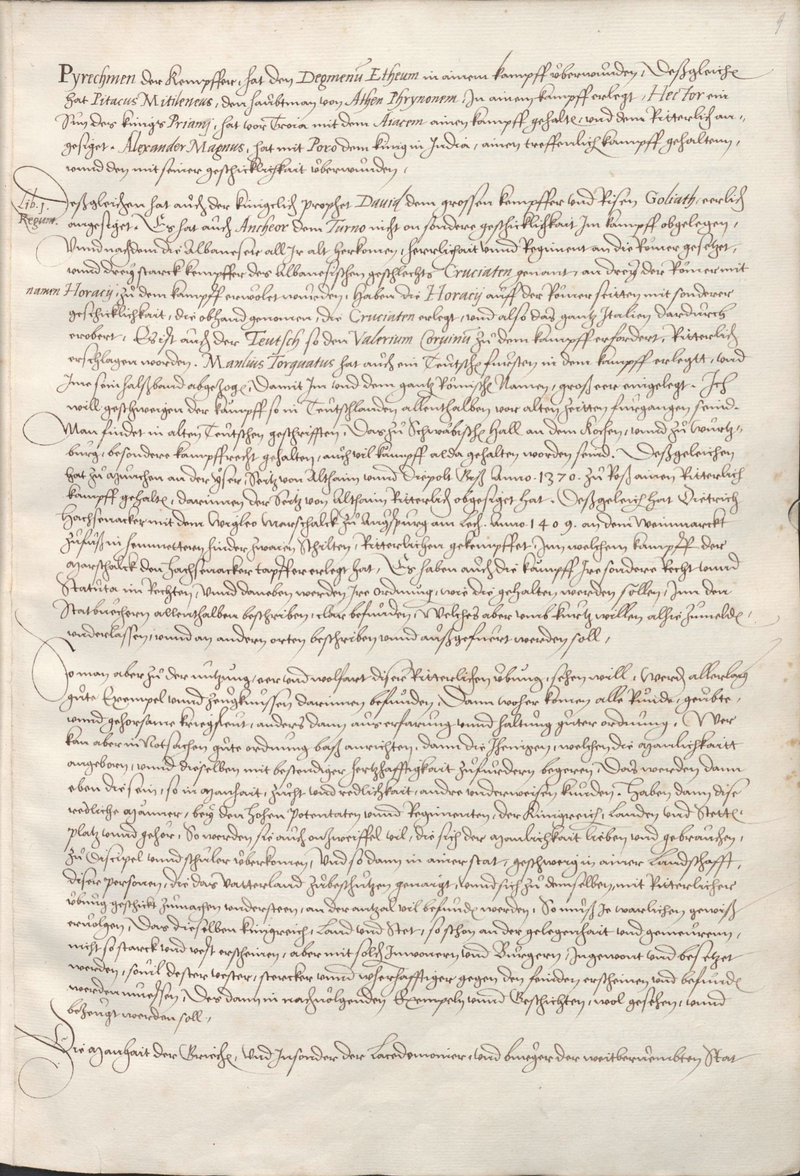 9
Pyrechmen der Kempffer, hat den Degmenũ Etheum in ainem kampff vberwunden, Deßgleichē
hat Pitacus Mitileneus, den haubtman von Athen Phrynonem, In ainem kampff erlegt, Hector ein
Sun des künigs Priamj, hat vor Troia mit dem Aiacem ainen kampff gehaltē, vnd dem Ritterlich an-
gesiget. Alexander Magnus, hat mit Poro dem künig in India, ainen treffenlich kampff gehaltenn,
vnnd den mit seiner geschicklichkait vberwunden,
Lib. 1.
Regum.
Deßgleichen hat auch der künigclich prophet Dauid, dem grossen kempffer vnd Risen Goliath, eerlich
angesiget. Es hat auch Ancheor dem Turno nicht on sondere geschicklichkait Im kampff obgelegen,
Vnnd nachdem die Albaneser all Ir alt herkomen, herrlichait vnnd Regiment an die Römer gesetzet,
vnnd dreÿ starck kempffer des Albanesischen geschlechts Cruciaten genant, an dreÿ der Römer mit
namen Horacij, zu dem kampff erwölet wurden, Haben die Horacij auff der Römer seitten mit sonderer
geschicklichkait, die obhand genomen, die Cruciaten erlegt, vnd also das gantz Italien dardurch
erobert, Es ist auch der Teutsch so den Valerium Coruinũ zu dem kampff erfordert, Ritterlich
erschlagen worden. Manlius Torquatus hat auch ein Teutschē fürsten in dem kampff erlegtt, vnd
Ime sein halßband abgezogē, Damit Im vnd dem gantz Römischē Namen, groß eere eingelegt. Ich
will geschweigen der kampff so in Teutschlanden allenthalben vor alten zeitten fürgangen seind.
Man findet in alten Teutschen geschrifften, Das zu Schwäbische Hall an dem Kochen, vnnd zu Würtz-
burg, besondere kampffrecht gehalten, auch vil kampff alda gehalten worden seind. Deßgeleichen
hat zu München an der Yser, Seitz von Althaim vnnd Diepolt Geß Anno. 1370. zu Roß ainen Ritterlich
kampff gehaltē, darinnen der Seitz von Althaim Ritterlich obgesiget hat. Deßgeleich hat Dietrich
Hachsenacker mit dem Wigleo Marschalck zu Augspurg am Lech. Anno. 1409. an dem Weinmarckt
zufuß in hemmettern hinder zwaien Schilten, Ritterlichen gekempffet, Inn welchem kampff der
Marschalck den Hachsenacker tapffer erlegt hat, Es haben auch die kampff Ire sondere Recht vnnd
Statuta im Rechten, vnnd daneben werden Ire ordnung, wie die gehalten werden sollen, Inn den
Statbüchern allenthalben beschriben, clar befunden, Welches aber vmb kurtz willen alhie zumeldē
vnderlassen, vnnd an andern orten beschriben vnnd außgefüert werden soll,
So man aber zu der nutzung, eer vnd wolfart diser Ritterlichen vbung, sehen will, Werden allerlaÿ
gute Exempel vnnd zeugknussen darinnen befunden, Dann woher komen alle Runde, geübte,
vnnd gehorsame kriegsleut, anders dann aus erfarung vnnd haltung guter ordnung, Wer
kan aber in Notsachen gute ordnung baß anrichten, dann die Ihenigen, welchen die Manlichkaitt
angeborn, vnnd dieselben mit bestendiger hertzhafftigkait zufürdern begeren, Das werden dann
eben die sein, so in Manhait, zucht vnd redlichkait, andre vnderweisen kunden. Haben dann dise
redliche Männer, beÿ den Hohen Potentaten vnnd Regimenten, der Künigreich, Landen vnd Stettē
platz vnnd gehör, So werden sie auch on zweiffel vil, die sich der Manlichkait lieben vnd gebrauchen,
zu Discipel vnnd schuler vberkomen, Vnd so dann in ainer stat, geschweig in ainer Landschafft,
diser personen, die das Vatterland zubeschutzen genaigt, vnnd sich zu demselben, mit Ritterlicher
vbung geschickt zumachen vndersteen, an der antzal vil befundē werden, So muß Je warlichen gewiß
eruolgen, Das dieselben künigreich, Land vnd Stet, so schon an der gelegenhait vnd gemeurenn,
nicht so starck vnd vest erscheinen, aber mit solch Inwonern vnd Burgern, Ingewont vnd besetzet
werden, souil dester vester, stercker vnnd wherhafftiger gegen den feinden erscheinen vnd befundē
werden müessen, Des dann in nachuolgenden Exempeln vnnd Geschichten, wol gesehen, vnnd
bezeugt werden soll,
Die Manhait der Griechē, Vnd Insonder der Lacedemonier, vnd burger der weitberuembten Stat